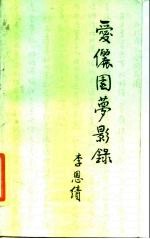 愛儷園夢影錄
李恩绩